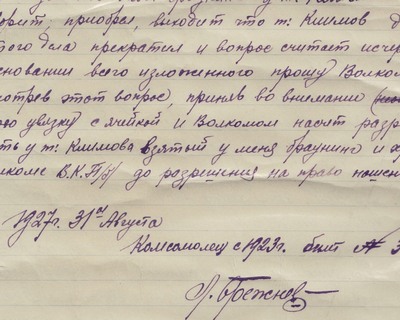 оворит, приобрел, выходит что т: Климов д
того дела прекратил и вопрос считает исчер
сновании всего изложенного прошу Волком
мотрев этот вопрос, приняв во внимание
ою увязку с ячейкой и Волкомом насчет разр
ть у т: Климова взятый у меня браунинг и х
лкоме В.К.П/б/ до разрешения на право ношен
1927г. 31го Августа
Комсомолец с 1923г. билет № 3
Л. Брежнев